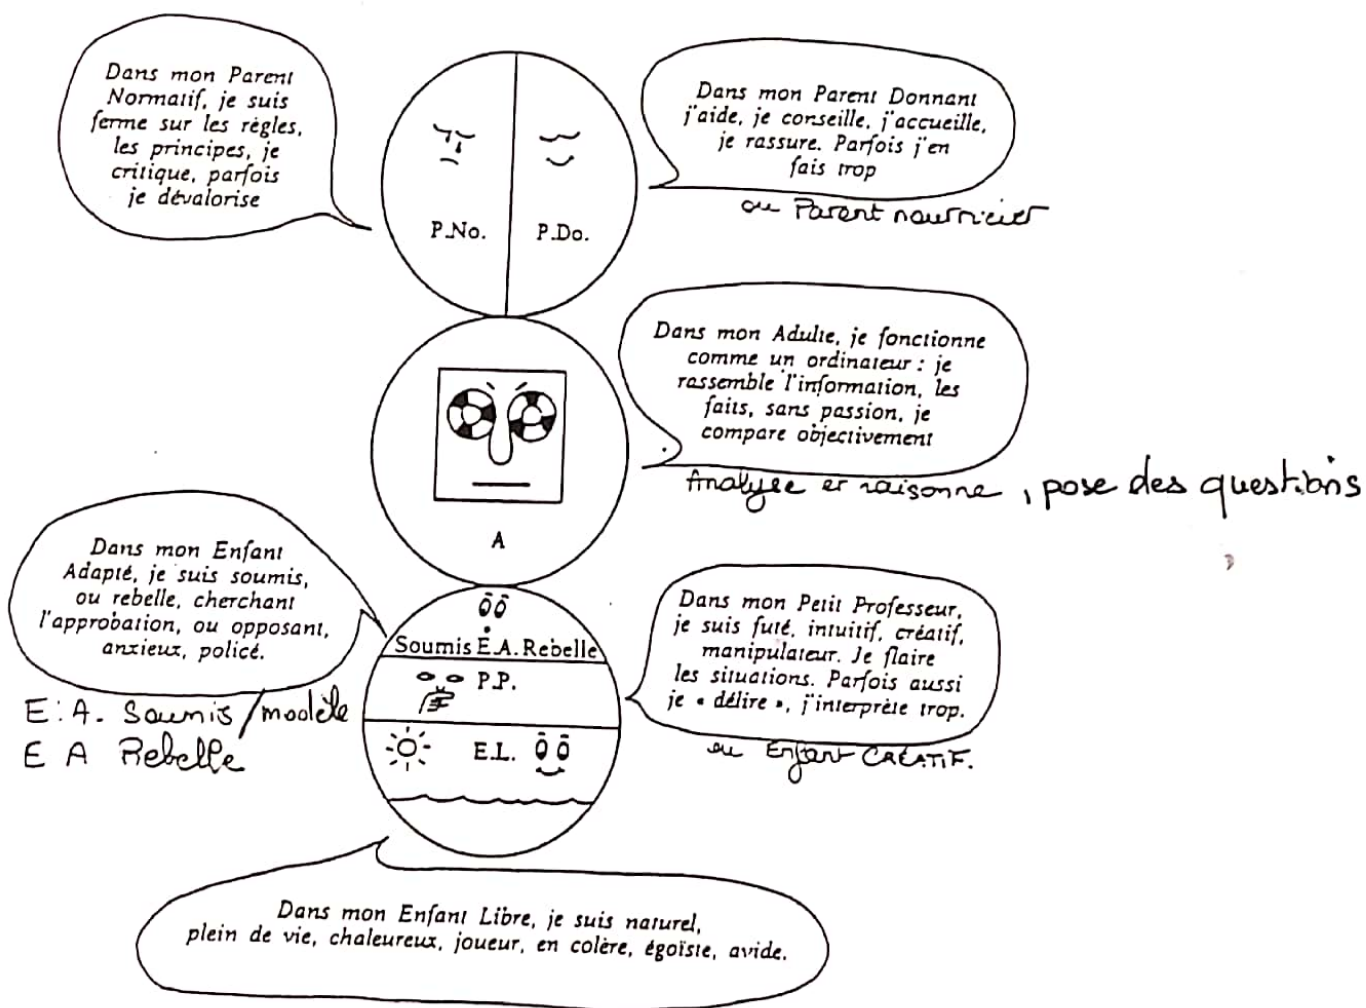 Dans mon Parent
Normatif, je suis
ferme sur les règles,
les principes, je
critique, parfois
je dévalorise
Dans mon Parent Donnant
j'aide, je conseille, j'accueille,
je rassure. Parfois j'en
fais trop
ou Parent nourricier
P.No.
P.Do.
Dans mon Adulte, je fonctionne
comme un ordinateur : je
rassemble l'information, les
faits, sans passion, je
compare objectivement
Analyse et raisonne, pose des questions
A
Dans mon Enfant
Adapté, je suis soumis,
ou rebelle, cherchant
l'approbation, ou opposant,
anxieux, policé.
E.A. Soumis / modèle
E A Rebelle
Soumis E.A. Rebelle
P.P.
E.L.
Dans mon Petit Professeur,
je suis futé, intuitif, créatif,
manipulateur. Je flaire
les situations. Parfois aussi
je « délire », j'interprète trop.
ou Enfant CRÉATIF.
Dans mon Enfant Libre, je suis naturel,
plein de vie, chaleureux, joueur, en colère, égoïste, avide.